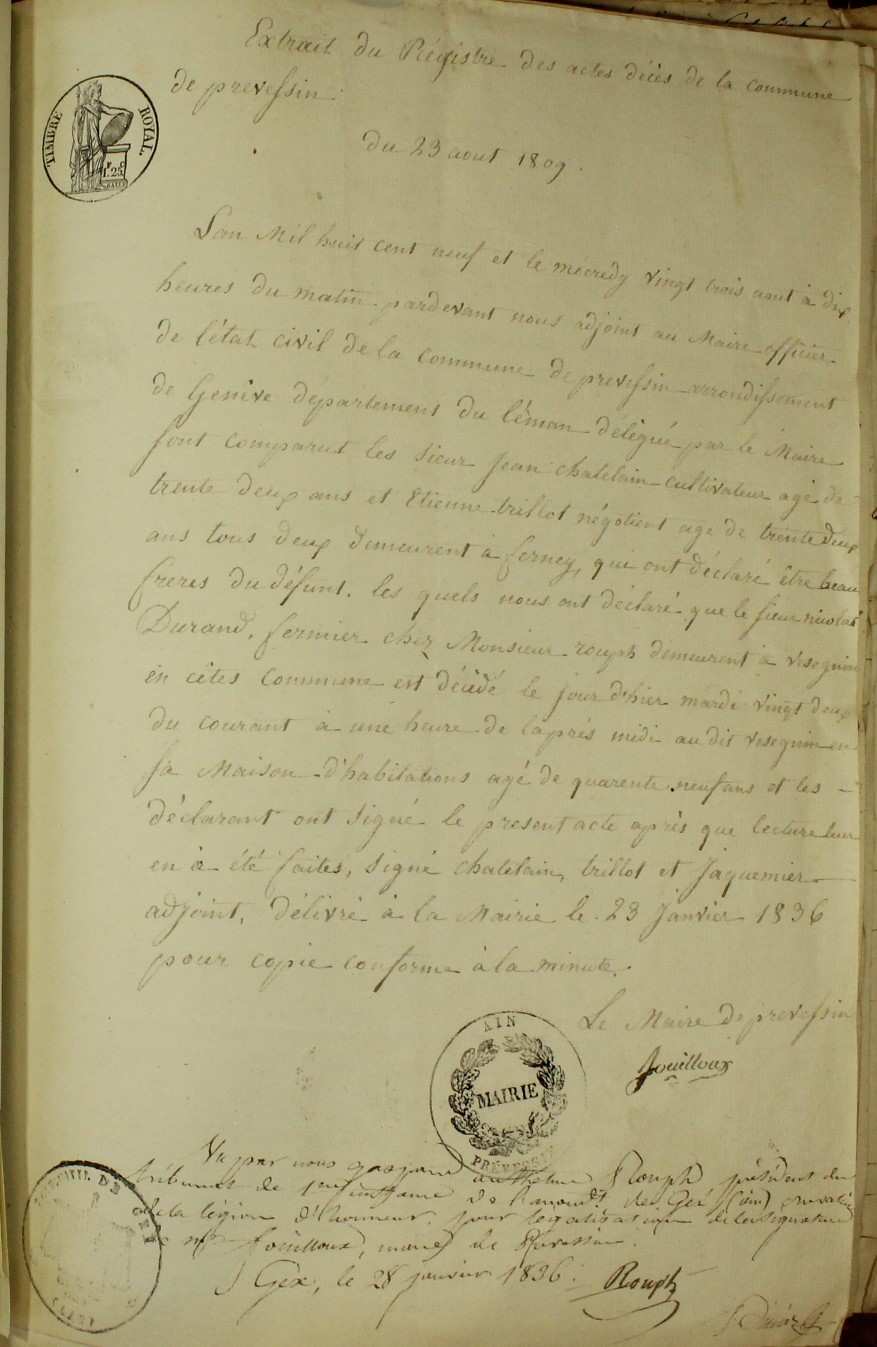 Extrait du Régistre des actes décès de la commune
de prevessin.
TIMBRE ROYAL
1F 25C
du 23 aout 1809.
L'an Mil huit cent neuf et le mécredy vingt trois aout à dix
heures du matin pardevant nous adjoint au Maire officier
de l'état civil de la commune de prevessin arrondissement
de Genève département du léman délégué par le Maire
sont comparut les sieur jean chatelain cultivateur agé de
trente deux ans et Etienne trillot négotient age de trente deux
ans tous deux demeurent à ferney, qui ont déclaré être beau
freres du défunt. les quels nous ont déclaré que le sieur nicolas
Durand, fermier chez Monsieur rouph demeurent à vesegnin
en cêtes commune est décédé le jour d'hier mardi vingt deux
du courant à une heure de laprés midi au dit vesegnin en
sa Maison d'habitations agé de quarente neuf ans et les
déclarant ont signé le present acte après que lecture leur
en à été faites, signé chatelain, trillot et jaquemier
adjoint, délivré à la Mairie le 23 janvier 1836
pour copie conforme à la minute.
Le Maire de prevessin
fouilloux
AIN
MAIRIE
PREVESSIN
Vu par nous anthelme Rouph président du
tribunal de 1ere instance de l'arrondt de Gex (ain)
de la légion d'honneur, pour légalisation de la signature
de mr fouilloux, maire de Prevessin.
Gex, le 28 janvier 1836. Rouph